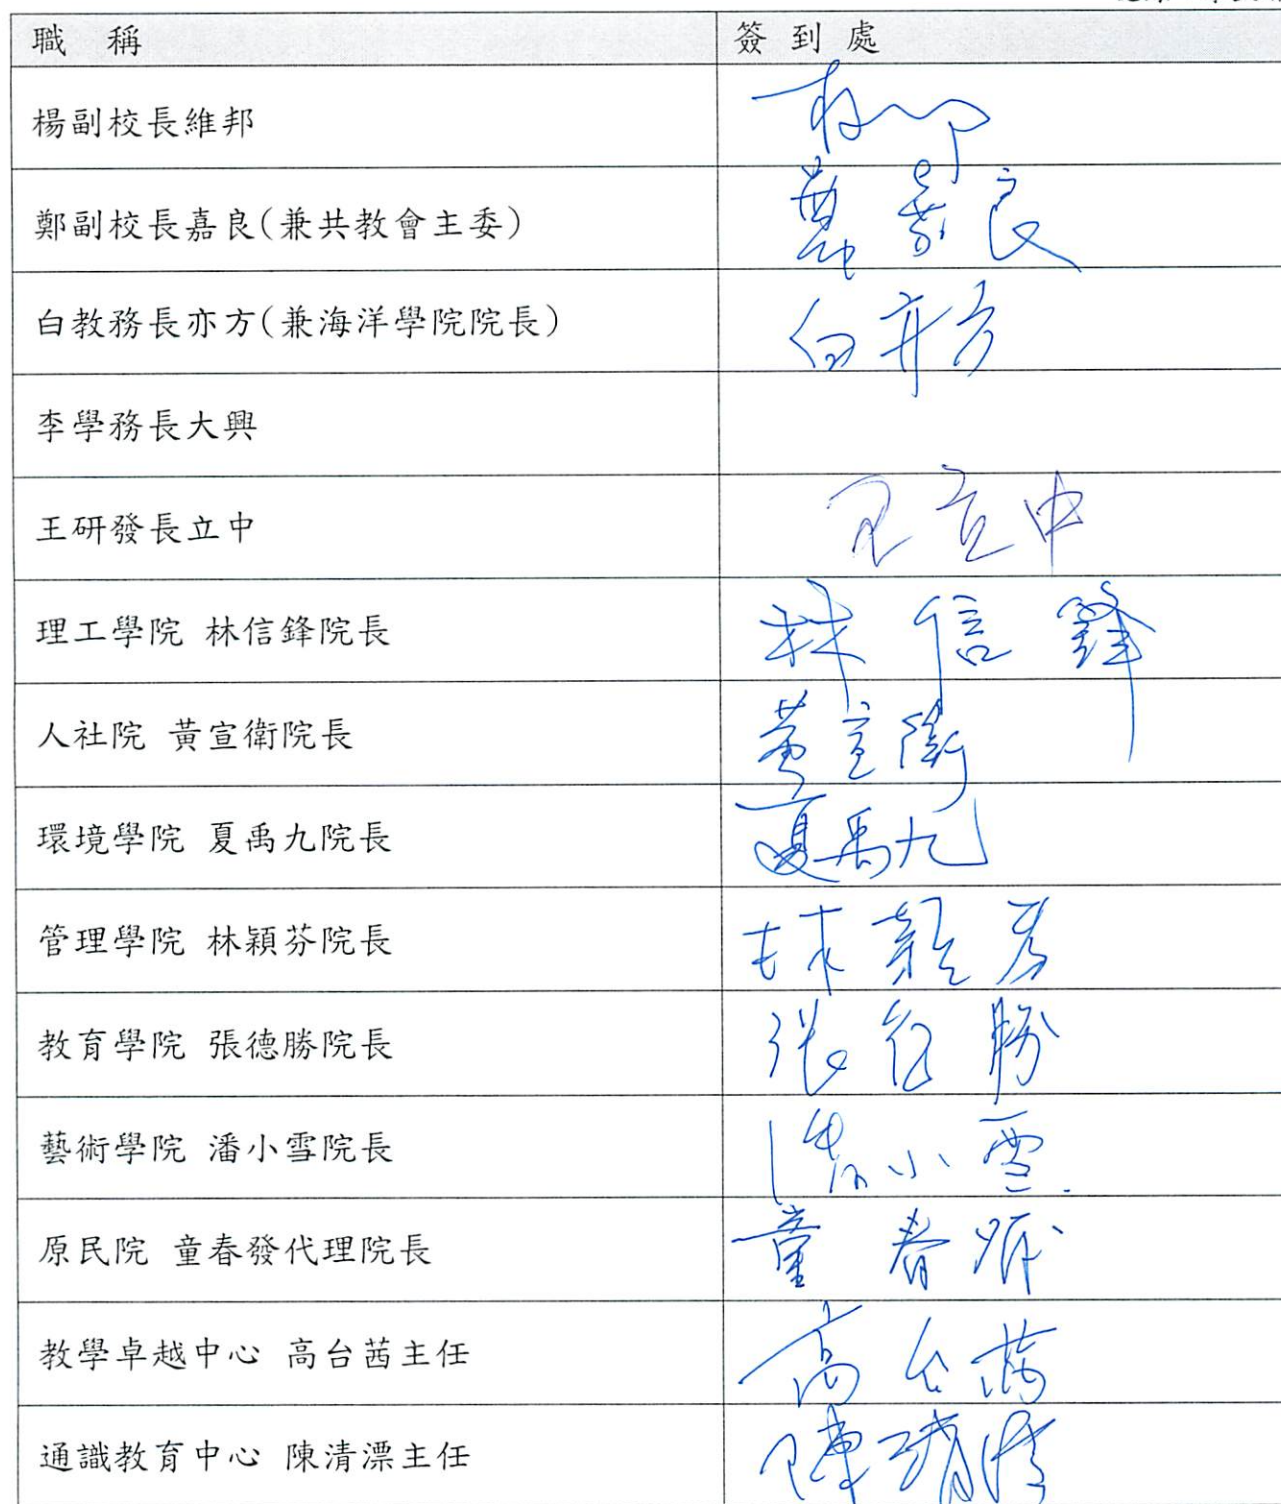 職 稱 簽 到 處
楊副校長維邦
鄭副校長嘉良(兼共教會主委)
白教務長亦方(兼海洋學院院長) 白亦方
李學務長大興
王研發長立中 王立中
理工學院 林信鋒院長 林信鋒
人社院 黃宣衛院長 黃宣衛
環境學院 夏禹九院長 夏禹九
管理學院 林穎芬院長 林穎芬
教育學院 張德勝院長 張德勝
藝術學院 潘小雪院長 潘小雪
原民院 童春發代理院長 童春發
教學卓越中心 高台茜主任 高台茜
通識教育中心 陳清漂主任